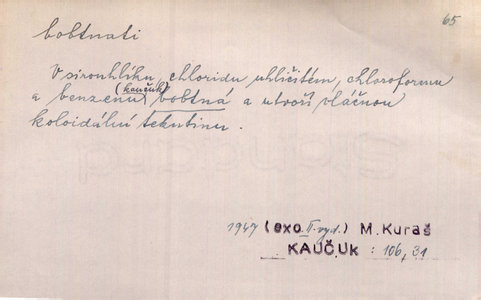 65
bobtnati
V sirouhlíku, chloridu uhličitém, chloroformu
a benzenu (kaučuk) bobtná a utvoří vláčnou
koloidální tekutinu.
1947 (exo. II. vyd.) M. Kuraš
KAUČUK : 106, 31